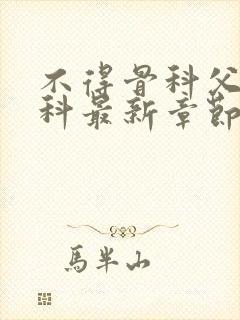 不得骨科父
科最新章節
馬半山